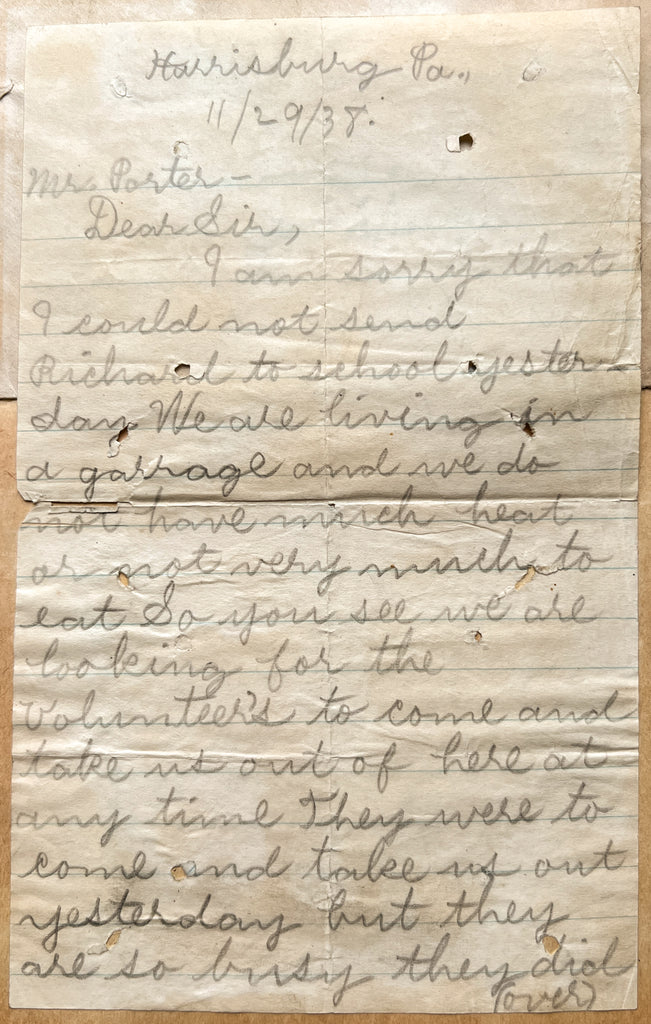 Harrisburg Pa.,
11/29/38.
Mr. Porter -
Dear Sir,
I am sorry that
I could not send
Richard to school yester-
day We are living in
a garrage and we do
not have much heat
or not very much to
eat So you see we are
looking for the
Volunteer's to come and
take us out of here at
any time They were to
come and take us out
yesterday but they
are so busy they did
(over)